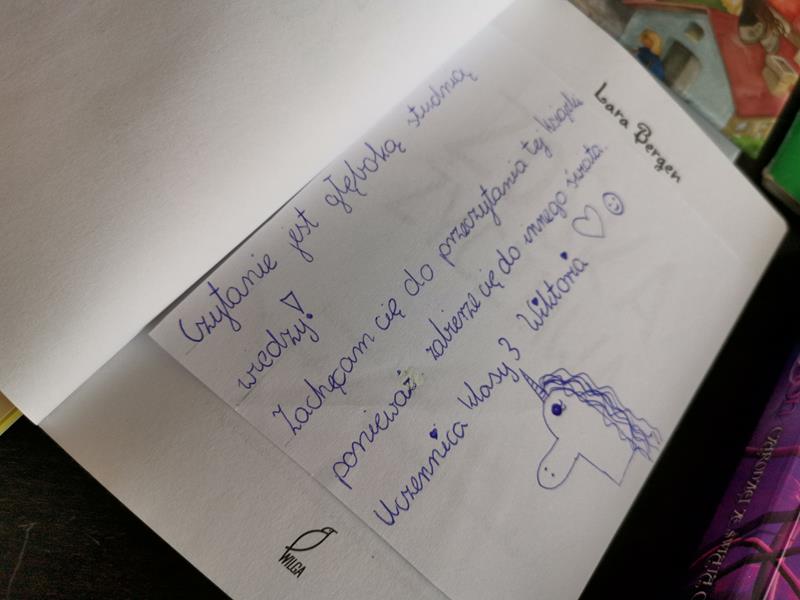 Lara Bergen
Czytanie jest głęboką studnią
wiedzy!
Zachęcam cię do przeczytania tej książki
ponieważ zabierze cię do innego świata.
Uczennica klasy 3 Wiktoria
WILGA